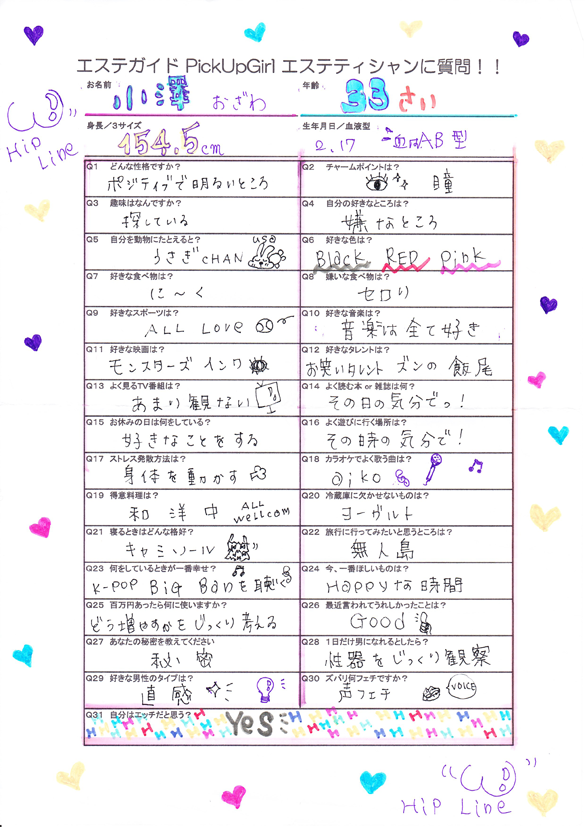 エステガイド PickUpGirl エステティシャンに質問！！
お名前 小澤 おざわ
年齢 33さい
Hip Line
身長／3サイズ 154.5cm
生年月日／血液型 2.17 血はAB型
Q1 どんな性格ですか？
ポジティブで明るいところ
Q2 チャームポイントは？
瞳
Q3 趣味はなんですか？
探している
Q4 自分の好きなところは？
嫌なところ
Q5 自分を動物にたとえると？
うさぎCHAN usa
Q6 好きな色は？
Black RED Pink
Q7 好きな食べ物は？
に〜く
Q8 嫌いな食べ物は？
セロリ
Q9 好きなスポーツは？
ALL Love
Q10 好きな音楽は？
音楽は全て好き
Q11 好きな映画は？
モンスターズインク
Q12 好きなタレントは？
お笑いタレント ズンの飯尾
Q13 よく見るTV番組は？
あまり観ない
Q14 よく読む本 or 雑誌は何？
その日の気分でっ！
Q15 お休みの日は何をしている？
好きなことをする
Q16 よく遊びに行く場所は？
その時の気分で！
Q17 ストレス発散方法は？
身体を動かす
Q18 カラオケでよく歌う曲は？
aiko
Q19 得意料理は？
和 洋 中 ALL wellcom
Q20 冷蔵庫に欠かせないものは？
ヨーグルト
Q21 寝るときはどんな格好？
キャミソール
Q22 旅行に行ってみたいと思うところは？
無人島
Q23 何をしているときが一番幸せ？
K-POP BiG Banを聴く
Q24 今、一番ほしいものは？
Happyな時間
Q25 百万円あったら何に使いますか？
どう増やすかをじっくり考える
Q26 最近言われてうれしかったことは？
Good
Q27 あなたの秘密を教えてください
秘密
Q28 1日だけ男になれるとしたら？
性器をじっくり観察
Q29 好きな男性のタイプは？
直感
Q30 ズバリ何フェチですか？
声フェチ VOICE
Q31 自分はエッチだと思う？
Yes
Hip Line